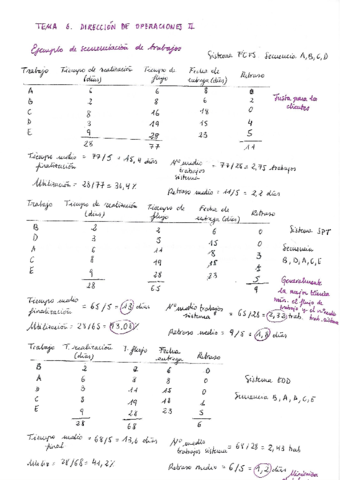 TEMA 6. DIRECCIÓN DE OPERACIONES II
Ejemplo de secuenciación de trabajos
Sistema FCFS Secuencia A, B, C, D
Trabajo Tiempo de realización (días) Tiempo de flujo Fecha de entrega (días) Retraso
A 6 6 8 0
B 2 8 6 2
C 8 16 18 0
D 3 19 15 4
E 9 28 23 5
28 77 11
Justa para los clientes
Tiempo medio finalización = 77/5 = 15,4 días
Nº medio trabajos sistema = 77/28 = 2,75 trabajos
Utilización = 28/77 = 36,4%
Retraso medio = 11/5 = 2,2 días
Trabajo Tiempo de realización (días) Tiempo de flujo Fecha de entrega (días) Retraso
B 2 2 6 0
D 3 5 15 0
A 6 11 8 3
C 8 19 18
E 9 28 23 5
28 65 9
Sistema SPT
Secuencia
B, D, A, C, E
Generalmente
la mejor técnica
el flujo de
trabajo y el
Tiempo medio finalización = 65/5 = 13 días
Nº medio trabajos sistema = 65/28 = 2,32 trab.
Utilización = 28/65 = 43,08%
Retraso medio = 9/5 = 1,8 días
Trabajo T. realización (días) T. flujo Fecha entrega Retraso
B 2 2 6 0
A 6 8 8 0
D 3 11 15 0
C 8 19 18 1
E 9 28 23 5
28 68 6
Sistema EDD
Secuencia B, A, D, C, E
Tiempo medio final = 68/5 = 13,6 días
Nº medio trabajos sistema = 68/28 = 2,43 trab
= 28/68 = 41,2%
Retraso medio = 6/5 = 1,2 días